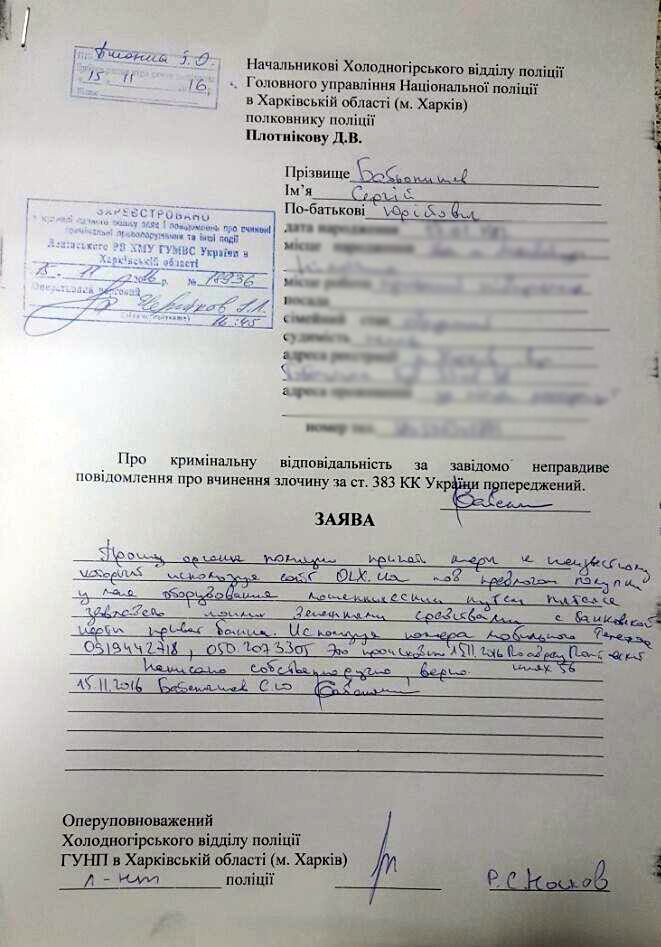 15 11 16
Начальникові Холодногірського відділу поліції
Головного управління Національної поліції
в Харківській області (м. Харків)
полковнику поліції
Плотнікову Д.В.
Прізвище
Ім’я Сергій
По-батькові Юрійович
дата народження
місце народження
місце роботи
посада
сімейний стан
судимість
адреса реєстрації
адреса проживання
номер тел.
ЗАРЕЄСТРОВАНО
в журналі єдиного обліку заяв і повідомлень про вчинені
кримінальні правопорушення та інші події
Ленінського РВ ХМУ ГУМВС України в
Харківській області
15. 11 2016 р. № 18936
Оперативний черговий
16:45
Про кримінальну відповідальність за завідомо неправдиве
повідомлення про вчинення злочину за ст. 383 КК України попереджений.
ЗАЯВА
Прошу органы полиции принять меры к неизвестному
который используя сайт OLX.ua под предлогом покупки
у меня оборудования мошенническим путем пытался
завладеть моими денежными средствами с банковской
карты приват банка. Используя номера мобильного телефона
0919442718, 050 2073305 Это произошло 15.11.2016 По адресу
шлях 56
Написано собственноручно, верно.
15.11.2016 С.Ю
Оперуповноважений
Холодногірського відділу поліції
ГУНП в Харківській області (м. Харків)
л-нт поліції